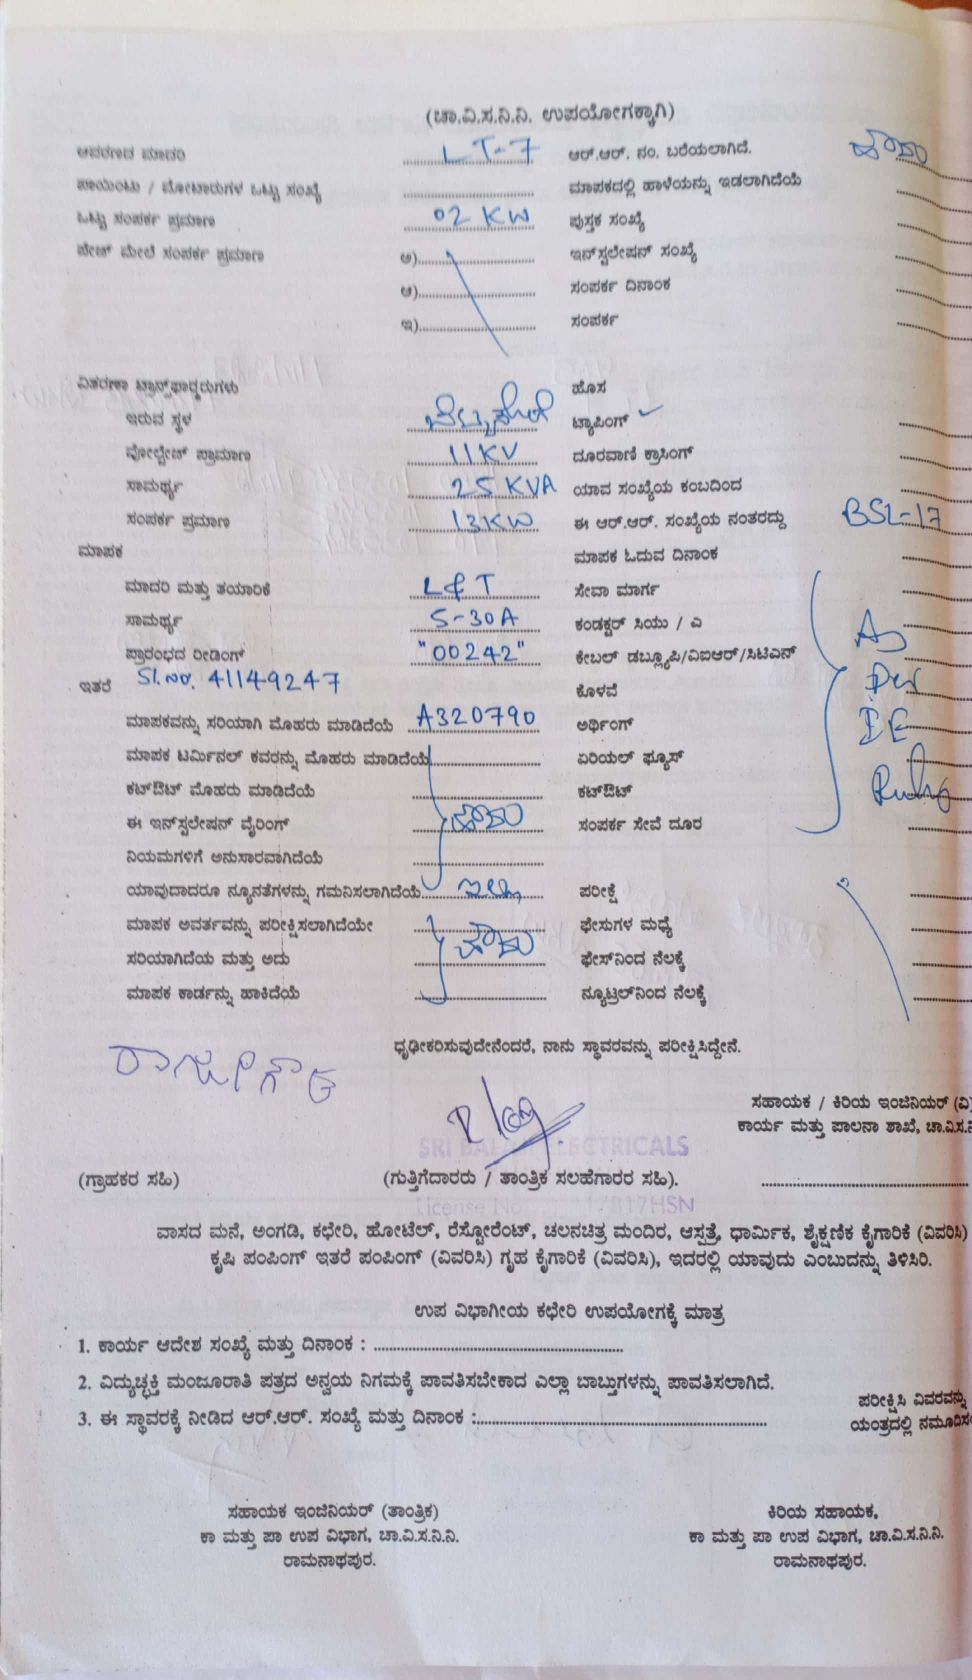 (ಚಾ.ವಿ.ಸ.ನಿ.ನಿ. ಉಪಯೋಗಕ್ಕಾಗಿ)
ಆವರಣದ ಮಾದರಿ LT-7 ಆರ್.ಆರ್. ನಂ. ಬರೆಯಲಾಗಿದೆ. ಹೌದು
ಪಾಯಿಂಟು / ಮೋಟಾರುಗಳ ಒಟ್ಟು ಸಂಖ್ಯೆ ಮಾಪಕದಲ್ಲಿ ಹಾಳೆಯನ್ನು ಇಡಲಾಗಿದೆಯೆ
ಒಟ್ಟು ಸಂಪರ್ಕ ಪ್ರಮಾಣ 02 KW ಪುಸ್ತಕ ಸಂಖ್ಯೆ
ಪೇಜ್ ಮೇಲೆ ಸಂಪರ್ಕ ಪ್ರಮಾಣ ಅ) ಇನ್‌ಸ್ಟಲೇಷನ್ ಸಂಖ್ಯೆ
ಆ) ಸಂಪರ್ಕ ದಿನಾಂಕ
ಇ) ಸಂಪರ್ಕ
ವಿತರಣಾ ಟ್ರಾನ್ಸ್‌ಫಾರ್ಮರುಗಳು ಹೊಸ
ಇರುವ ಸ್ಥಳ ಟ್ಯಾಪಿಂಗ್ ✓
ವೋಲ್ಟೇಜ್ ಪ್ರಾಮಾಣ 11KV ದೂರವಾಣಿ ಕ್ರಾಸಿಂಗ್
ಸಾಮರ್ಥ್ಯ 25 KVA ಯಾವ ಸಂಖ್ಯೆಯ ಕಂಬದಿಂದ
ಸಂಪರ್ಕ ಪ್ರಮಾಣ 13KW ಈ ಆರ್.ಆರ್. ಸಂಖ್ಯೆಯ ನಂತರದ್ದು BSL-17
ಮಾಪಕ ಮಾಪಕ ಓದುವ ದಿನಾಂಕ
ಮಾದರಿ ಮತ್ತು ತಯಾರಿಕೆ L&T ಸೇವಾ ಮಾರ್ಗ
ಸಾಮರ್ಥ್ಯ 5-30A ಕಂಡಕ್ಟರ್ ಸಿಯು / ಎ As
ಪ್ರಾರಂಭದ ರೀಡಿಂಗ್ "00242" ಕೇಬಲ್ ಡಬ್ಲ್ಯೂಪಿ/ವಿಐಆರ್/ಸಿಟಿಎಸ್
ಇತರೆ Sl.no. 41149247 ಕೊಳವೆ Per
ಮಾಪಕವನ್ನು ಸರಿಯಾಗಿ ಮೊಹರು ಮಾಡಿದೆಯೆ A320790 ಅರ್ಥಿಂಗ್ IE
ಮಾಪಕ ಟರ್ಮಿನಲ್ ಕವರನ್ನು ಮೊಹರು ಮಾಡಿದೆಯೆ ಏರಿಯಲ್ ಫ್ಯೂಸ್
ಕಟ್‌ಔಟ್ ಮೊಹರು ಮಾಡಿದೆಯೆ ಕಟ್‌ಔಟ್ Rules
ಈ ಇನ್‌ಸ್ಟಲೇಷನ್ ವೈರಿಂಗ್ ಹೌದು ಸಂಪರ್ಕ ಸೇವೆ ದೂರ
ನಿಯಮಗಳಿಗೆ ಅನುಸಾರವಾಗಿದೆಯೆ
ಯಾವುದಾದರೂ ನ್ಯೂನತೆಗಳನ್ನು ಗಮನಿಸಲಾಗಿದೆಯೆ ಇಲ್ಲ ಪರೀಕ್ಷೆ
ಮಾಪಕ ಅವರ್ತವನ್ನು ಪರೀಕ್ಷಿಸಲಾಗಿದೆಯೇ ಹೌದು ಫೇಸುಗಳ ಮಧ್ಯೆ
ಸರಿಯಾಗಿದೆಯ ಮತ್ತು ಅದು ಫೇಸ್‌ನಿಂದ ನೆಲಕ್ಕೆ
ಮಾಪಕ ಕಾರ್ಡನ್ನು ಹಾಕಿದೆಯೆ ನ್ಯೂಟ್ರಲ್‌ನಿಂದ ನೆಲಕ್ಕೆ
ಧೃಢೀಕರಿಸುವುದೇನೆಂದರೆ, ನಾನು ಸ್ಥಾವರವನ್ನು ಪರೀಕ್ಷಿಸಿದ್ದೇನೆ.
ಸಹಾಯಕ / ಕಿರಿಯ ಇಂಜಿನಿಯರ್ (ವಿ)
ಕಾರ್ಯ ಮತ್ತು ಪಾಲನಾ ಶಾಖೆ, ಚಾ.ವಿ.ಸ.ನಿ
SRI BALAJI ELECTRICALS
(ಗ್ರಾಹಕರ ಸಹಿ) (ಗುತ್ತಿಗೆದಾರರು / ತಾಂತ್ರಿಕ ಸಲಹೆಗಾರರ ಸಹಿ).
License No 17817HSN
ವಾಸದ ಮನೆ, ಅಂಗಡಿ, ಕಛೇರಿ, ಹೋಟೆಲ್, ರೆಸ್ಟೋರೆಂಟ್, ಚಲನಚಿತ್ರ ಮಂದಿರ, ಆಸ್ಪತ್ರೆ, ಧಾರ್ಮಿಕ, ಶೈಕ್ಷಣಿಕ ಕೈಗಾರಿಕೆ (ವಿವರಿಸಿ)
ಕೃಷಿ ಪಂಪಿಂಗ್ ಇತರೆ ಪಂಪಿಂಗ್ (ವಿವರಿಸಿ) ಗೃಹ ಕೈಗಾರಿಕೆ (ವಿವರಿಸಿ), ಇದರಲ್ಲಿ ಯಾವುದು ಎಂಬುದನ್ನು ತಿಳಿಸಿರಿ.
ಉಪ ವಿಭಾಗೀಯ ಕಛೇರಿ ಉಪಯೋಗಕ್ಕೆ ಮಾತ್ರ
1. ಕಾರ್ಯ ಆದೇಶ ಸಂಖ್ಯೆ ಮತ್ತು ದಿನಾಂಕ :
2. ವಿದ್ಯುಚ್ಛಕ್ತಿ ಮಂಜೂರಾತಿ ಪತ್ರದ ಅನ್ವಯ ನಿಗಮಕ್ಕೆ ಪಾವತಿಸಬೇಕಾದ ಎಲ್ಲಾ ಬಾಬ್ತುಗಳನ್ನು ಪಾವತಿಸಲಾಗಿದೆ.
ಪರೀಕ್ಷಿಸಿ ವಿವರವನ್ನು
3. ಈ ಸ್ಥಾವರಕ್ಕೆ ನೀಡಿದ ಆರ್.ಆರ್. ಸಂಖ್ಯೆ ಮತ್ತು ದಿನಾಂಕ : ಯಂತ್ರದಲ್ಲಿ
ಸಹಾಯಕ ಇಂಜಿನಿಯರ್ (ತಾಂತ್ರಿಕ) ಕಿರಿಯ ಸಹಾಯಕ,
ಕಾ ಮತ್ತು ಪಾ ಉಪ ವಿಭಾಗ, ಚಾ.ವಿ.ಸ.ನಿ.ನಿ. ಕಾ ಮತ್ತು ಪಾ ಉಪ ವಿಭಾಗ, ಚಾ.ವಿ.ಸ.ನಿ.ನಿ.
ರಾಮನಾಥಪುರ. ರಾಮನಾಥಪುರ.